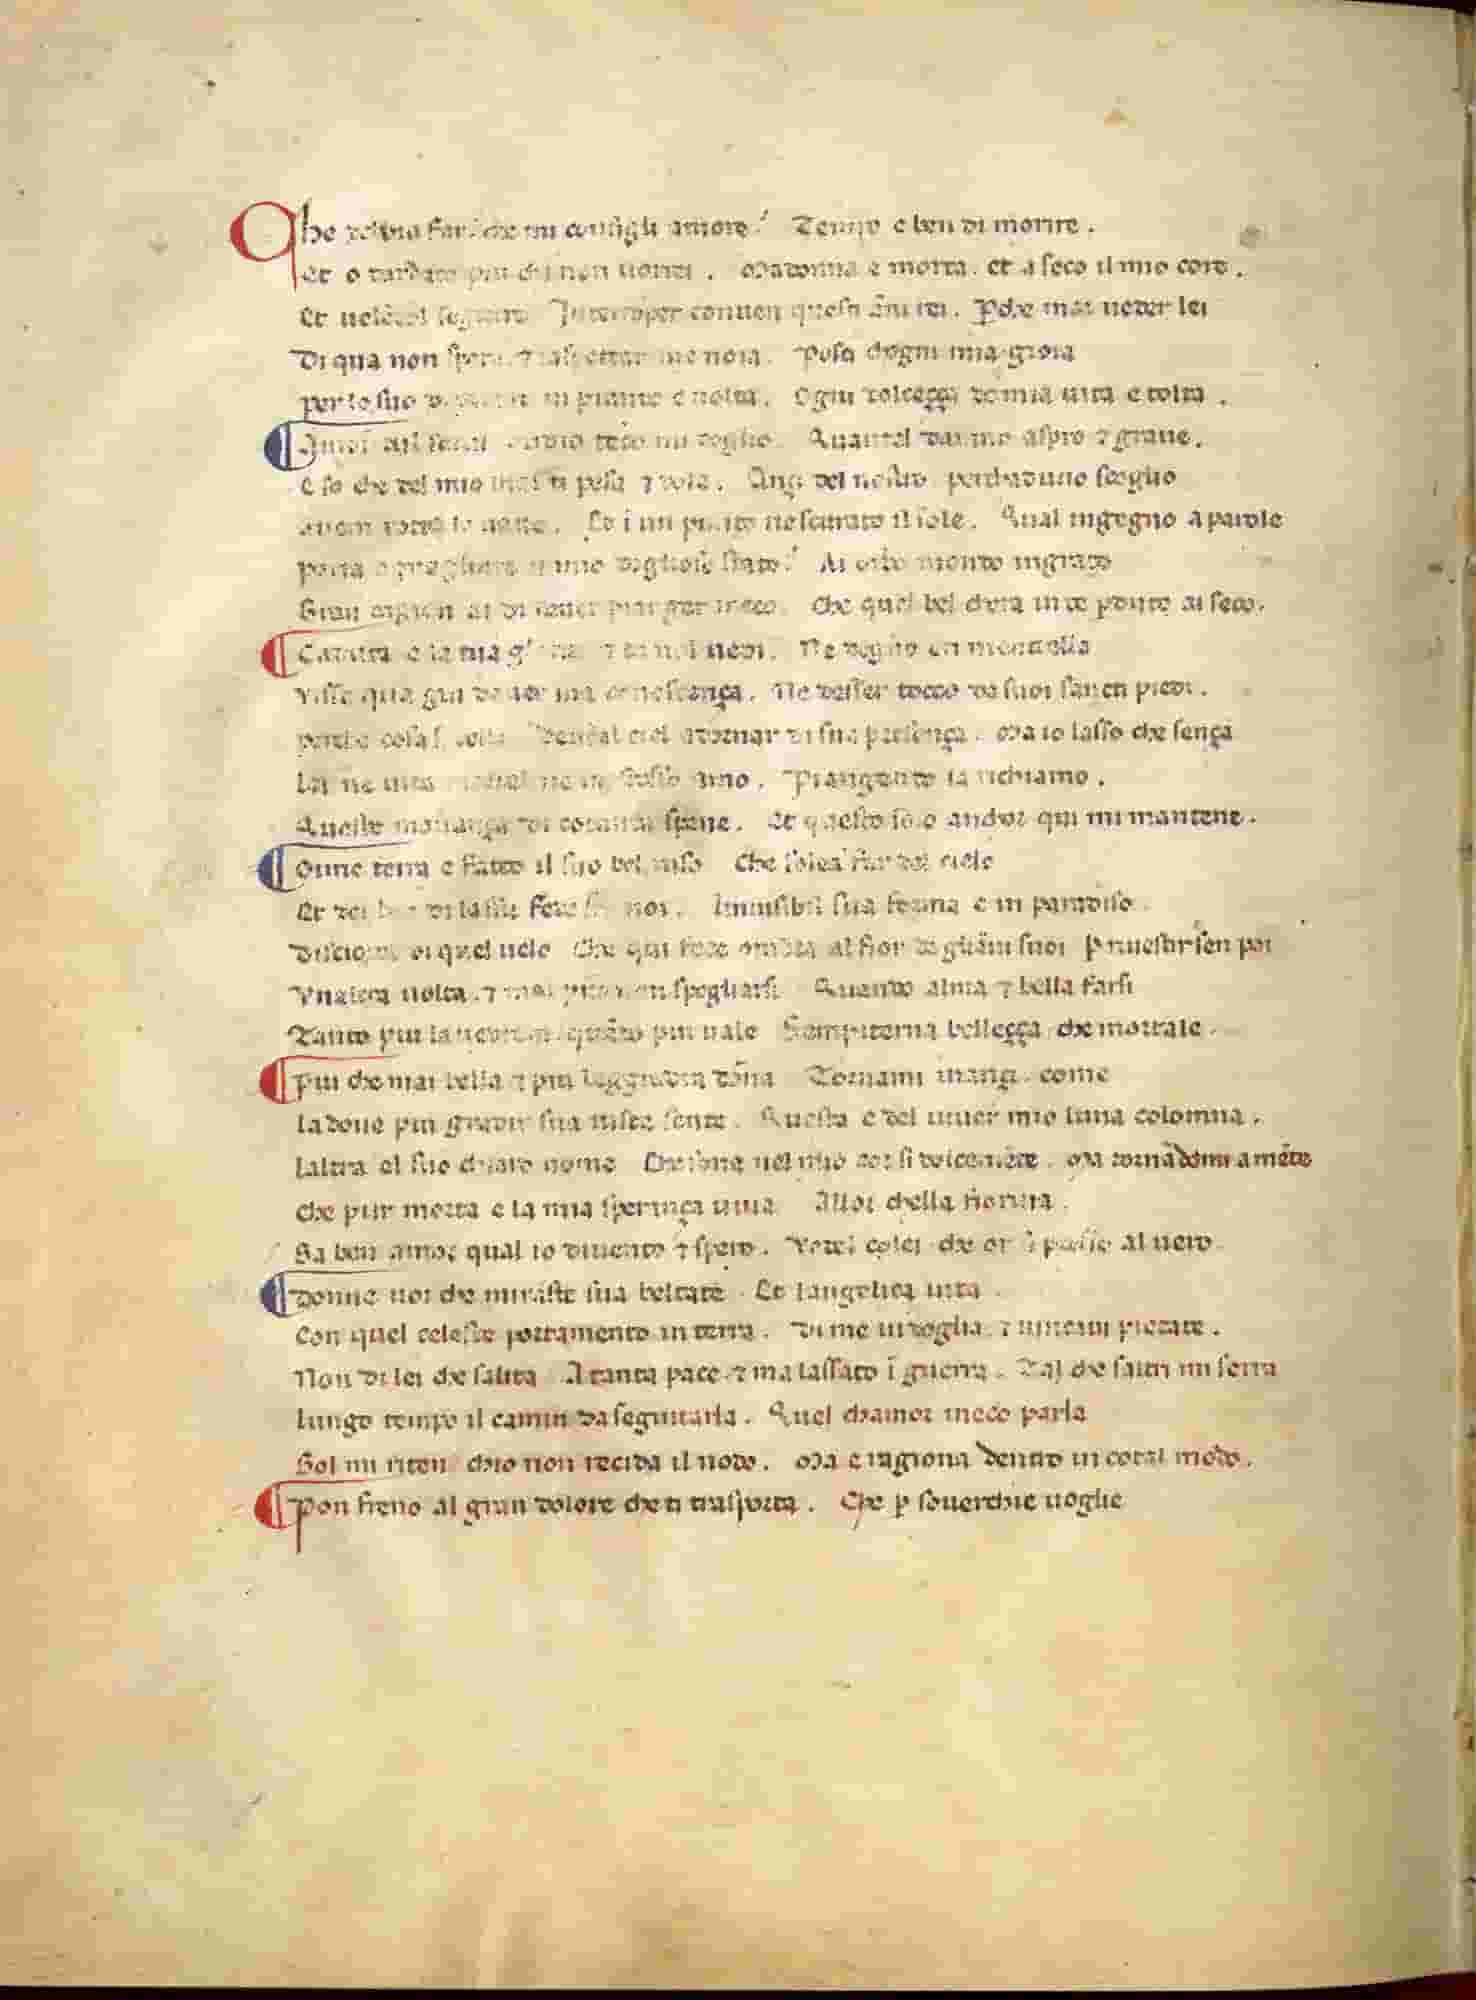 Che debbio far? che mi consigli amore? Tempo e ben di morire.
Et o tardato piu chi non uorrei. Madonna e morta. et a seco il mio core.
Et uolēdol seguire Interrōper conuen questi āni rei. Perche mai ueder lei
Di qua non spero. ⁊ laspettar me noia. Poscia chogni mia gioia
per lo suo dipartire in pianto e uolta. Ogni dolceçça de mia uita e tolta.
Amor tu senti ondio teco mi doglio. Quantel danno aspro ⁊ graue.
E so che del mio mal ti pesa ⁊ dole. Ançi del nostro perchaduno scoglio
auem rotto la naue. Et i un punto ne scurato il sole. Qual ingegno a parole
poria aguagliare il mio doglioso stato? Ai orbo mondo ingrato
Gran cagion ai di deuer pianger meco. Che quel bel chera in te perduto ai seco.
Caduta e la tua gloria ⁊ tu nol uedi. Ne degno eri mentrella
Visse qua giu dauer sua conoscença. Ne desser tocco da suoi sancti piedi.
perche cosa si bella Deuéal ciel adornar di sua presença. Ma io lasso che sença
Lei ne uita mortal ne me stesso amo. Piangendo la richiamo.
Questo mauança di cotanta spene. Et questo solo anchor qui mi mantene.
Oime terra e fatto il suo bel uiso Che solea far del cielo
Et del ben di lassu fede fra noi. Linuisibil sua forma e in paradiso.
Disciolta di quel uelo Che qui fece ombra al fior degliāni suoi Per riuestirsen poi
Vnaltra uolta. ⁊ mai piu non spogliarsi. Quando alma ⁊ bella farsi
Tanto piu la uedrem. quāto piu uale Sempiterna belleçça che mortale.
Piu che mai bella ⁊ piu leggiadra dōna Tornami inançi. come
la doue piu gradir sua uista sente. Questa e del uiuer mio luna colomna.
laltra el suo chiaro nome Che sona nel mio cor si dolcemēte. Ma tornādomi a mēte
che pur morta e la mia sperança uiua Allor chella fioriua.
Sa ben amor qual io diuento ⁊ spero. Vedel colei che or si presso al uero.
Donne uoi che miraste sua beltate Et langelica uita
Con quel celeste portamento in terra. Di me ui doglia ⁊ uincaui pietate.
Non di lei che salita A tanta pace. ⁊ ma lassato ī guerra. Tal che saltri mi serra
lungo tempo il camin da seguitarla. Quel chamor meco parla
Sol mi riten chio non recida il nodo. Ma e ragiona dentro in cotal modo.
Pon freno al gran dolore che ti trasporta. Che per souerchie uoglie